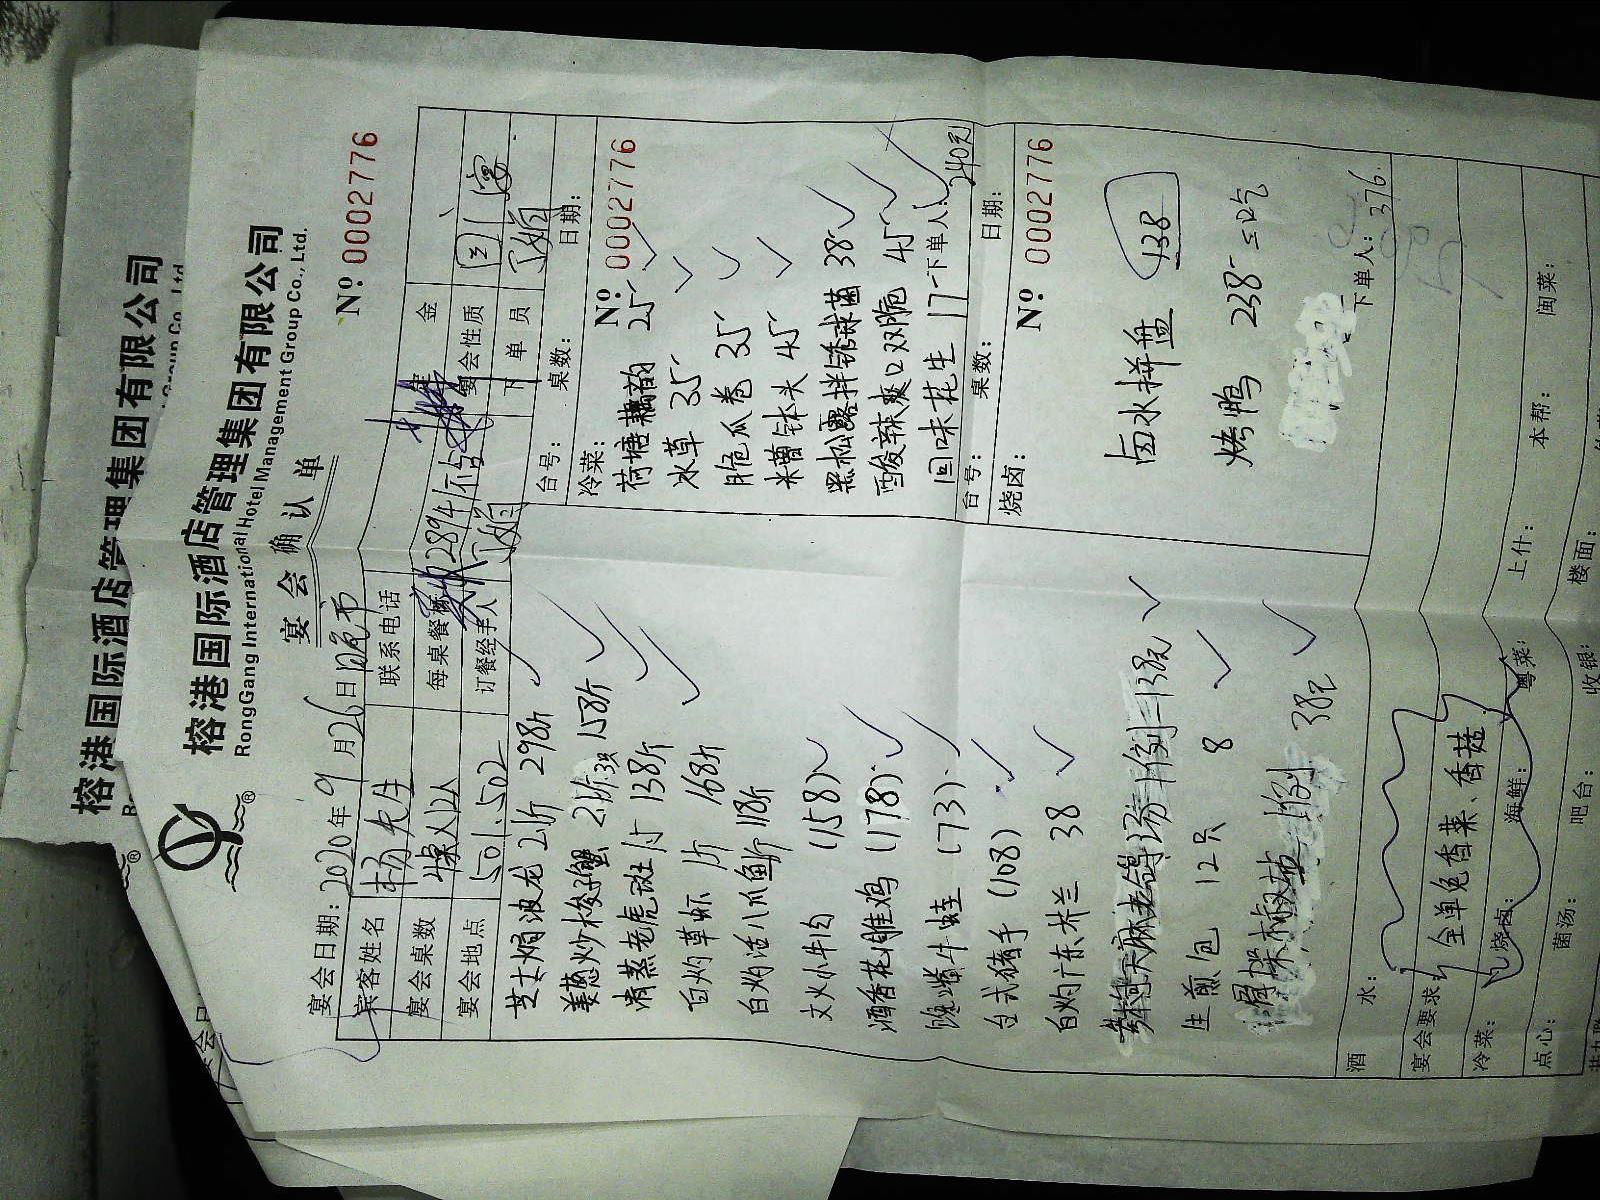 榕港国际酒店管理集团有限公司
Group Co., Ltd
榕港国际酒店管理集团有限公司
RongGang International Hotel Management Group Co., Ltd.
宴会确认单
№: 0002776
宴会日期: 2020年9月26日 晚市
宾客姓名 杨先生 联系电话 金
宴会桌数 1桌人12人 每桌餐标 2894/台 宴会性质
宴会地点 501.502 订餐经手人 下单员
芝士焗波龙 2斤 298斤
姜葱炒梭子蟹 2斤 3只 158斤
清蒸老虎斑 1斤 138斤
白灼草虾 1斤 168斤
白灼活八爪鱼1斤 118斤
文火小牛肉 (158)
酒香花雕鸡 (178)
牛蛙 (73)
台式猪手 (108)
白灼广东芥兰 38
138元
生煎包 12只 8
38元
台号: 桌数: 日期:
冷菜: №: 0002776
荷塘藕韵 25
水草 35
脆瓜卷 35
米糟钵头 45
黑松露拌绣球菌 38
酸辣爽口双脆 45
回味花生 17 下单人: 240元
台号: 桌数: 日期:
烧卤: №: 0002776
卤水拼盘 138
烤鸭 238 二吃
下单人: 376.
酒水:
宴会要求: 全单免香菜、香菇
冷菜: 烧卤: 海鲜: 粤菜: 上什: 本帮: 闽菜:
点心: 菌汤: 吧台: 收银: 楼面: